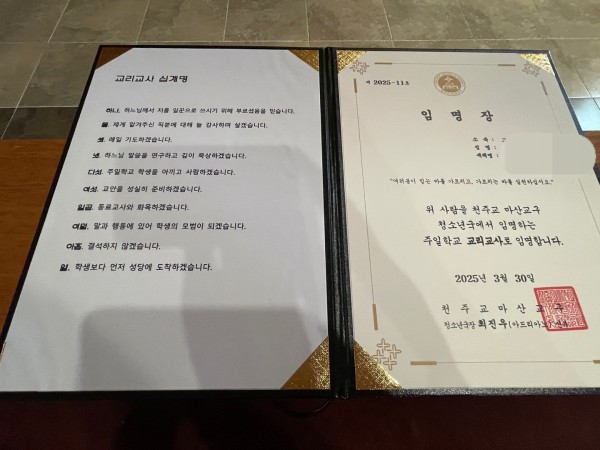 교리교사 십계명
하나. 하느님께서 저를 일꾼으로 쓰시기 위해 부르셨음을 믿습니다.
둘. 제게 맡겨주신 직분에 대해 늘 감사하며 살겠습니다.
셋. 매일 기도하겠습니다.
넷. 하느님 말씀을 연구하고 깊이 묵상하겠습니다.
다섯. 주일학교 학생을 아끼고 사랑하겠습니다.
여섯. 교안을 성실히 준비하겠습니다.
일곱. 동료교사와 화목하겠습니다.
여덟. 말과 행동에 있어 학생의 모범이 되겠습니다.
아홉. 결석하지 않겠습니다.
열. 학생보다 먼저 성당에 도착하겠습니다.
제 2025-11호
임 명 장
소 속 :
성 명 :
세례명 :
"여러분이 믿는 바를 가르치고, 가르치는 바를 실천하십시오."
위 사람을 천주교 마산교구
청소년국에서 임명하는
주일학교 교리교사로 임명합니다.
2025년 3월 30일
천 주 교 마 산 교 구
청소년국장 최진우(아드리아노)